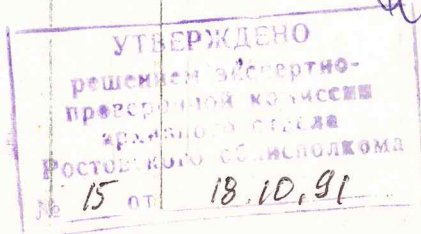 УТВЕРЖДЕНО
решением экспертно-
проверочной комиссии
архивного отдела
Ростовского облисполкома
№ 15 от 18.10.91